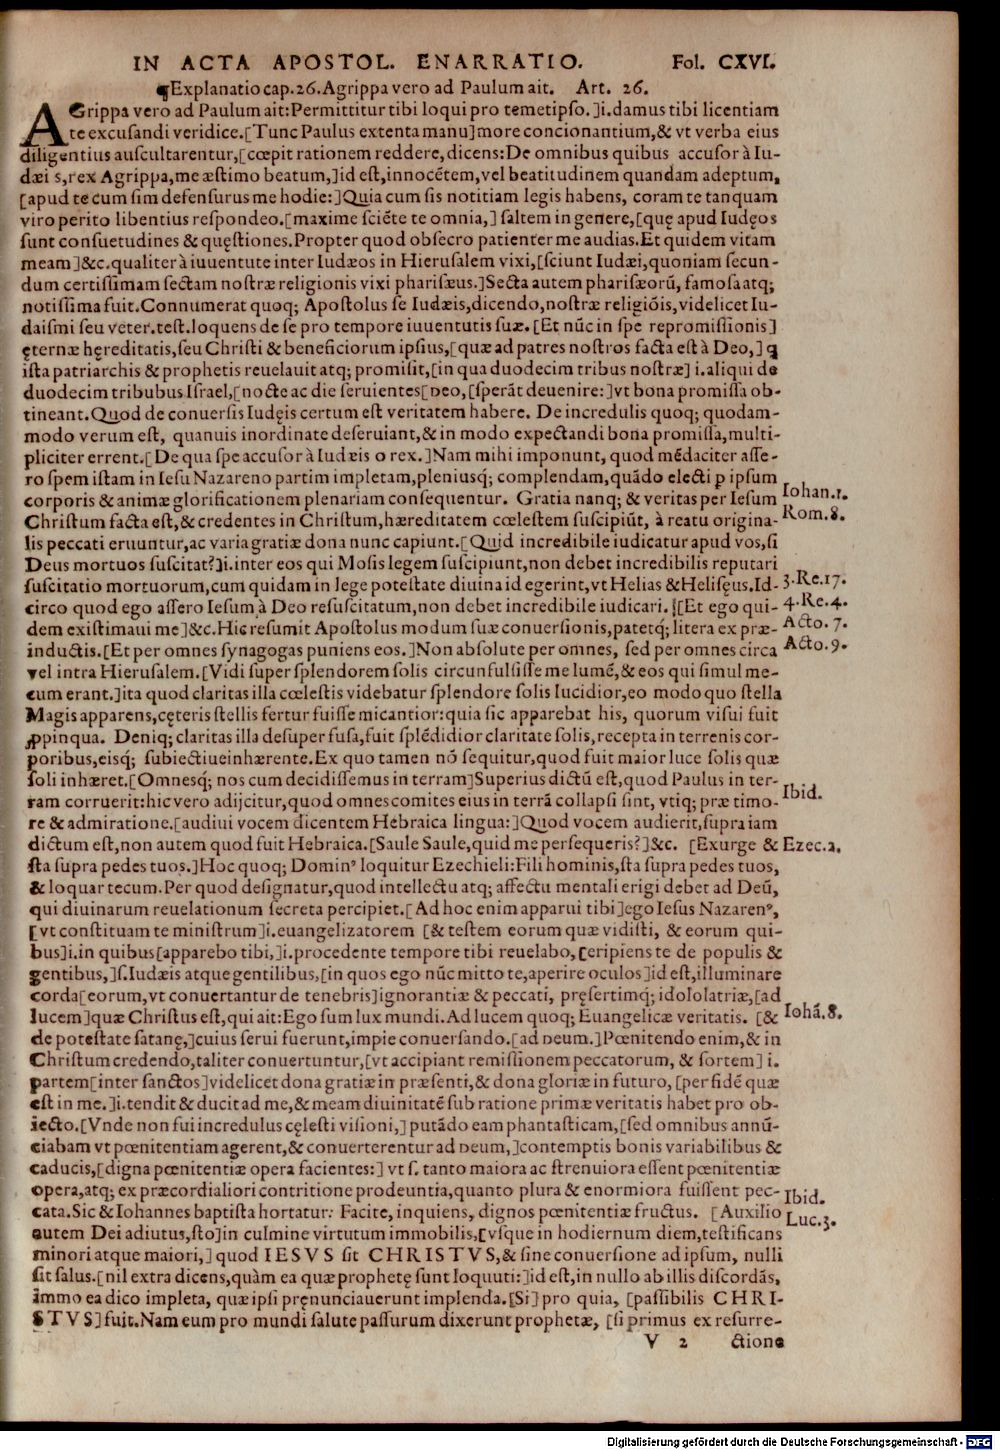 IN ACTA APOSTOL. ENARRATIO. Fol. CXVI.
¶Explanatio cap. 26. Agrippa vero ad Paulum ait. Art. 26.
AGrippa vero ad Paulum ait: Permittitur tibi loqui pro temetipso.] i. damus tibi licentiam
te excusandi veridice. [Tunc Paulus extenta manu] more concionantium, & vt verba eius
diligentius auscultarentur, [cœpit rationem reddere, dicens: De omnibus quibus accusor à Iu-
dæis, rex Agrippa, me æstimo beatum,] id est, innocẽtem, vel beatitudinem quandam adeptum,
[apud te cum sim defensurus me hodie:] Quia cum sis notitiam legis habens, coram te tanquam
viro perito libentius respondeo. [maxime sciẽte te omnia,] saltem in genere, [quę apud Iudęos
sunt consuetudines & quęstiones. Propter quod obsecro patienter me audias. Et quidem vitam
meam] &c. qualiter à iuuentute inter Iudæos in Hierusalem vixi, [sciunt Iudæi, quoniam secun-
dum certissimam sectam nostræ religionis vixi pharisæus.] Secta autem pharisæorũ, famosa atq;
notissima fuit. Connumerat quoq; Apostolus se Iudæis, dicendo, nostræ religiõis, videlicet Iu-
daismi seu veter. test. loquens de se pro tempore iuuentutis suæ. [Et nũc in spe repromissionis]
ęternæ hęreditatis, seu Christi & beneficiorum ipsius, [quæ ad patres nostros facta est à Deo,] ꝗ
ista patriarchis & prophetis reuelauit atq; promisit, [in qua duodecim tribus nostræ] i. aliqui de
duodecim tribubus Israel, [nocte ac die seruientes [Deo, [sperãt deuenire:] vt bona promissa ob-
tineant. Quod de conuersis Iudęis certum est veritatem habere. De incredulis quoq; quodam-
modo verum est, quanuis inordinate deseruiant, & in modo expectandi bona promissa, multi-
pliciter errent. [De qua spe accusor à Iudæis o rex.] Nam mihi imponunt, quod mẽdaciter asse-
ro spem istam in Iesu Nazareno partim impletam, pleniusq́; complendam, quãdo electi ꝑ ipsum
corporis & animæ glorificationem plenariam consequentur. Gratia nanq; & veritas per Iesum Iohan. 1.
Christum facta est, & credentes in Christum, hæreditatem cœlestem suscipiũt, à reatu origina- Rom. 8.
lis peccati eruuntur, ac varia gratiæ dona nunc capiunt. [Quid incredibile iudicatur apud vos, si
Deus mortuos suscitat?] i. inter eos qui Mosis legem suscipiunt, non debet incredibilis reputari
suscitatio mortuorum, cum quidam in lege potestate diuina id egerint, vt Helias & Helisęus. Id- 3. Re. 17.
circo quod ego assero Iesum à Deo resuscitatum, non debet incredibile iudicari. [Et ego qui- 4. Re. 4.
dem existimaui me] &c. Hic resumit Apostolus modum suæ conuersionis, patetq́; litera ex præ- Acto. 7.
inductis. [Et per omnes synagogas puniens eos.] Non absolute per omnes, sed per omnes circa Acto. 9.
vel intra Hierusalem. [Vidi super splendorem solis circunfulsisse me lumẽ, & eos qui simul me-
cum erant.] ita quod claritas illa cœlestis videbatur splendore solis lucidior, eo modo quo stella
Magis apparens, cęteris stellis fertur fuisse micantior: quia sic apparebat his, quorum visui fuit
ꝓpinqua. Deniq; claritas illa desuper fusa, fuit splẽdidior claritate solis, recepta in terrenis cor-
poribus, eisq́; subiectiue inhærente. Ex quo tamen nõ sequitur, quod fuit maior luce solis quæ
soli inhæret. [Omnesq́; nos cum decidissemus in terram] Superius dictũ est, quod Paulus in ter-
ram corruerit: hic vero adijcitur, quod omnes comites eius in terrã collapsi sint, vtiq; præ timo- Ibid.
re & admiratione. [audiui vocem dicentem Hebraica lingua:] Quod vocem audierit, supra iam
dictum est, non autem quod fuit Hebraica. [Saule Saule, quid me persequeris?] &c. [Exurge & Ezec. 2.
sta supra pedes tuos.] Hoc quoq; Dominꝰ loquitur Ezechieli: Fili hominis, sta supra pedes tuos,
& loquar tecum. Per quod designatur, quod intellectu atq; affectu mentali erigi debet ad Deũ,
qui diuinarum reuelationum secreta percipiet. [Ad hoc enim apparui tibi] ego Iesus Nazarenꝰ,
[vt constituam te ministrum] i. euangelizatorem [& testem eorum quæ vidisti, & eorum qui-
bus] i. in quibus [apparebo tibi,] i. procedente tempore tibi reuelabo, [eripiens te de populis &
gentibus,] s. Iudæis atque gentilibus, [in quos ego nũc mitto te, aperire oculos] id est, illuminare
corda [eorum, vt conuertantur de tenebris] ignorantiæ & peccati, pręsertimq́; idololatriæ, [ad
lucem] quæ Christus est, qui ait: Ego sum lux mundi. Ad lucem quoq; Euangelicæ veritatis. [& Iohã. 8.
de potestate satanę,] cuius serui fuerunt, impie conuersando. [ad Deum.] Pœnitendo enim, & in
Christum credendo, taliter conuertuntur, [vt accipiant remissionem peccatorum, & sortem] i.
partem [inter sanctos] videlicet dona gratiæ in præsenti, & dona gloriæ in futuro, [per fidẽ quæ
est in me.] i. tendit & ducit ad me, & meam diuinitatẽ sub ratione primæ veritatis habet pro ob-
iecto. [Vnde non fui incredulus cęlesti visioni,] putãdo eam phantasticam, [sed omnibus annũ-
ciabam vt pœnitentiam agerent, & conuerterentur ad Deum,] contemptis bonis variabilibus &
caducis, [digna pœnitentiæ opera facientes:] vt s. tanto maiora ac strenuiora essent pœnitentiæ
opera, atq; ex præcordialiori contritione prodeuntia, quanto plura & enormiora fuissent pec- Ibid.
cata. Sic & Iohannes baptista hortatur: Facite, inquiens, dignos pœnitentiæ fructus. [Auxilio Luc. 3.
autem Dei adiutus, sto] in culmine virtutum immobilis, [vsque in hodiernum diem, testificans
minori atque maiori,] quod IESVS sit CHRISTVS, & sine conuersione ad ipsum, nulli
sit salus. [nil extra dicens, quàm ea quæ prophetę sunt loquuti:] id est, in nullo ab illis discordãs,
immo ea dico impleta, quæ ipsi pręnunciauerunt implenda. [Si] pro quia, [passibilis CHRI-
STVS] fuit. Nam eum pro mundi salute passurum dixerunt prophetæ, [si primus ex resurre-
V 2 ctione
Digitalisierung gefördert durch die Deutsche Forschungsgemeinschaft - DFG